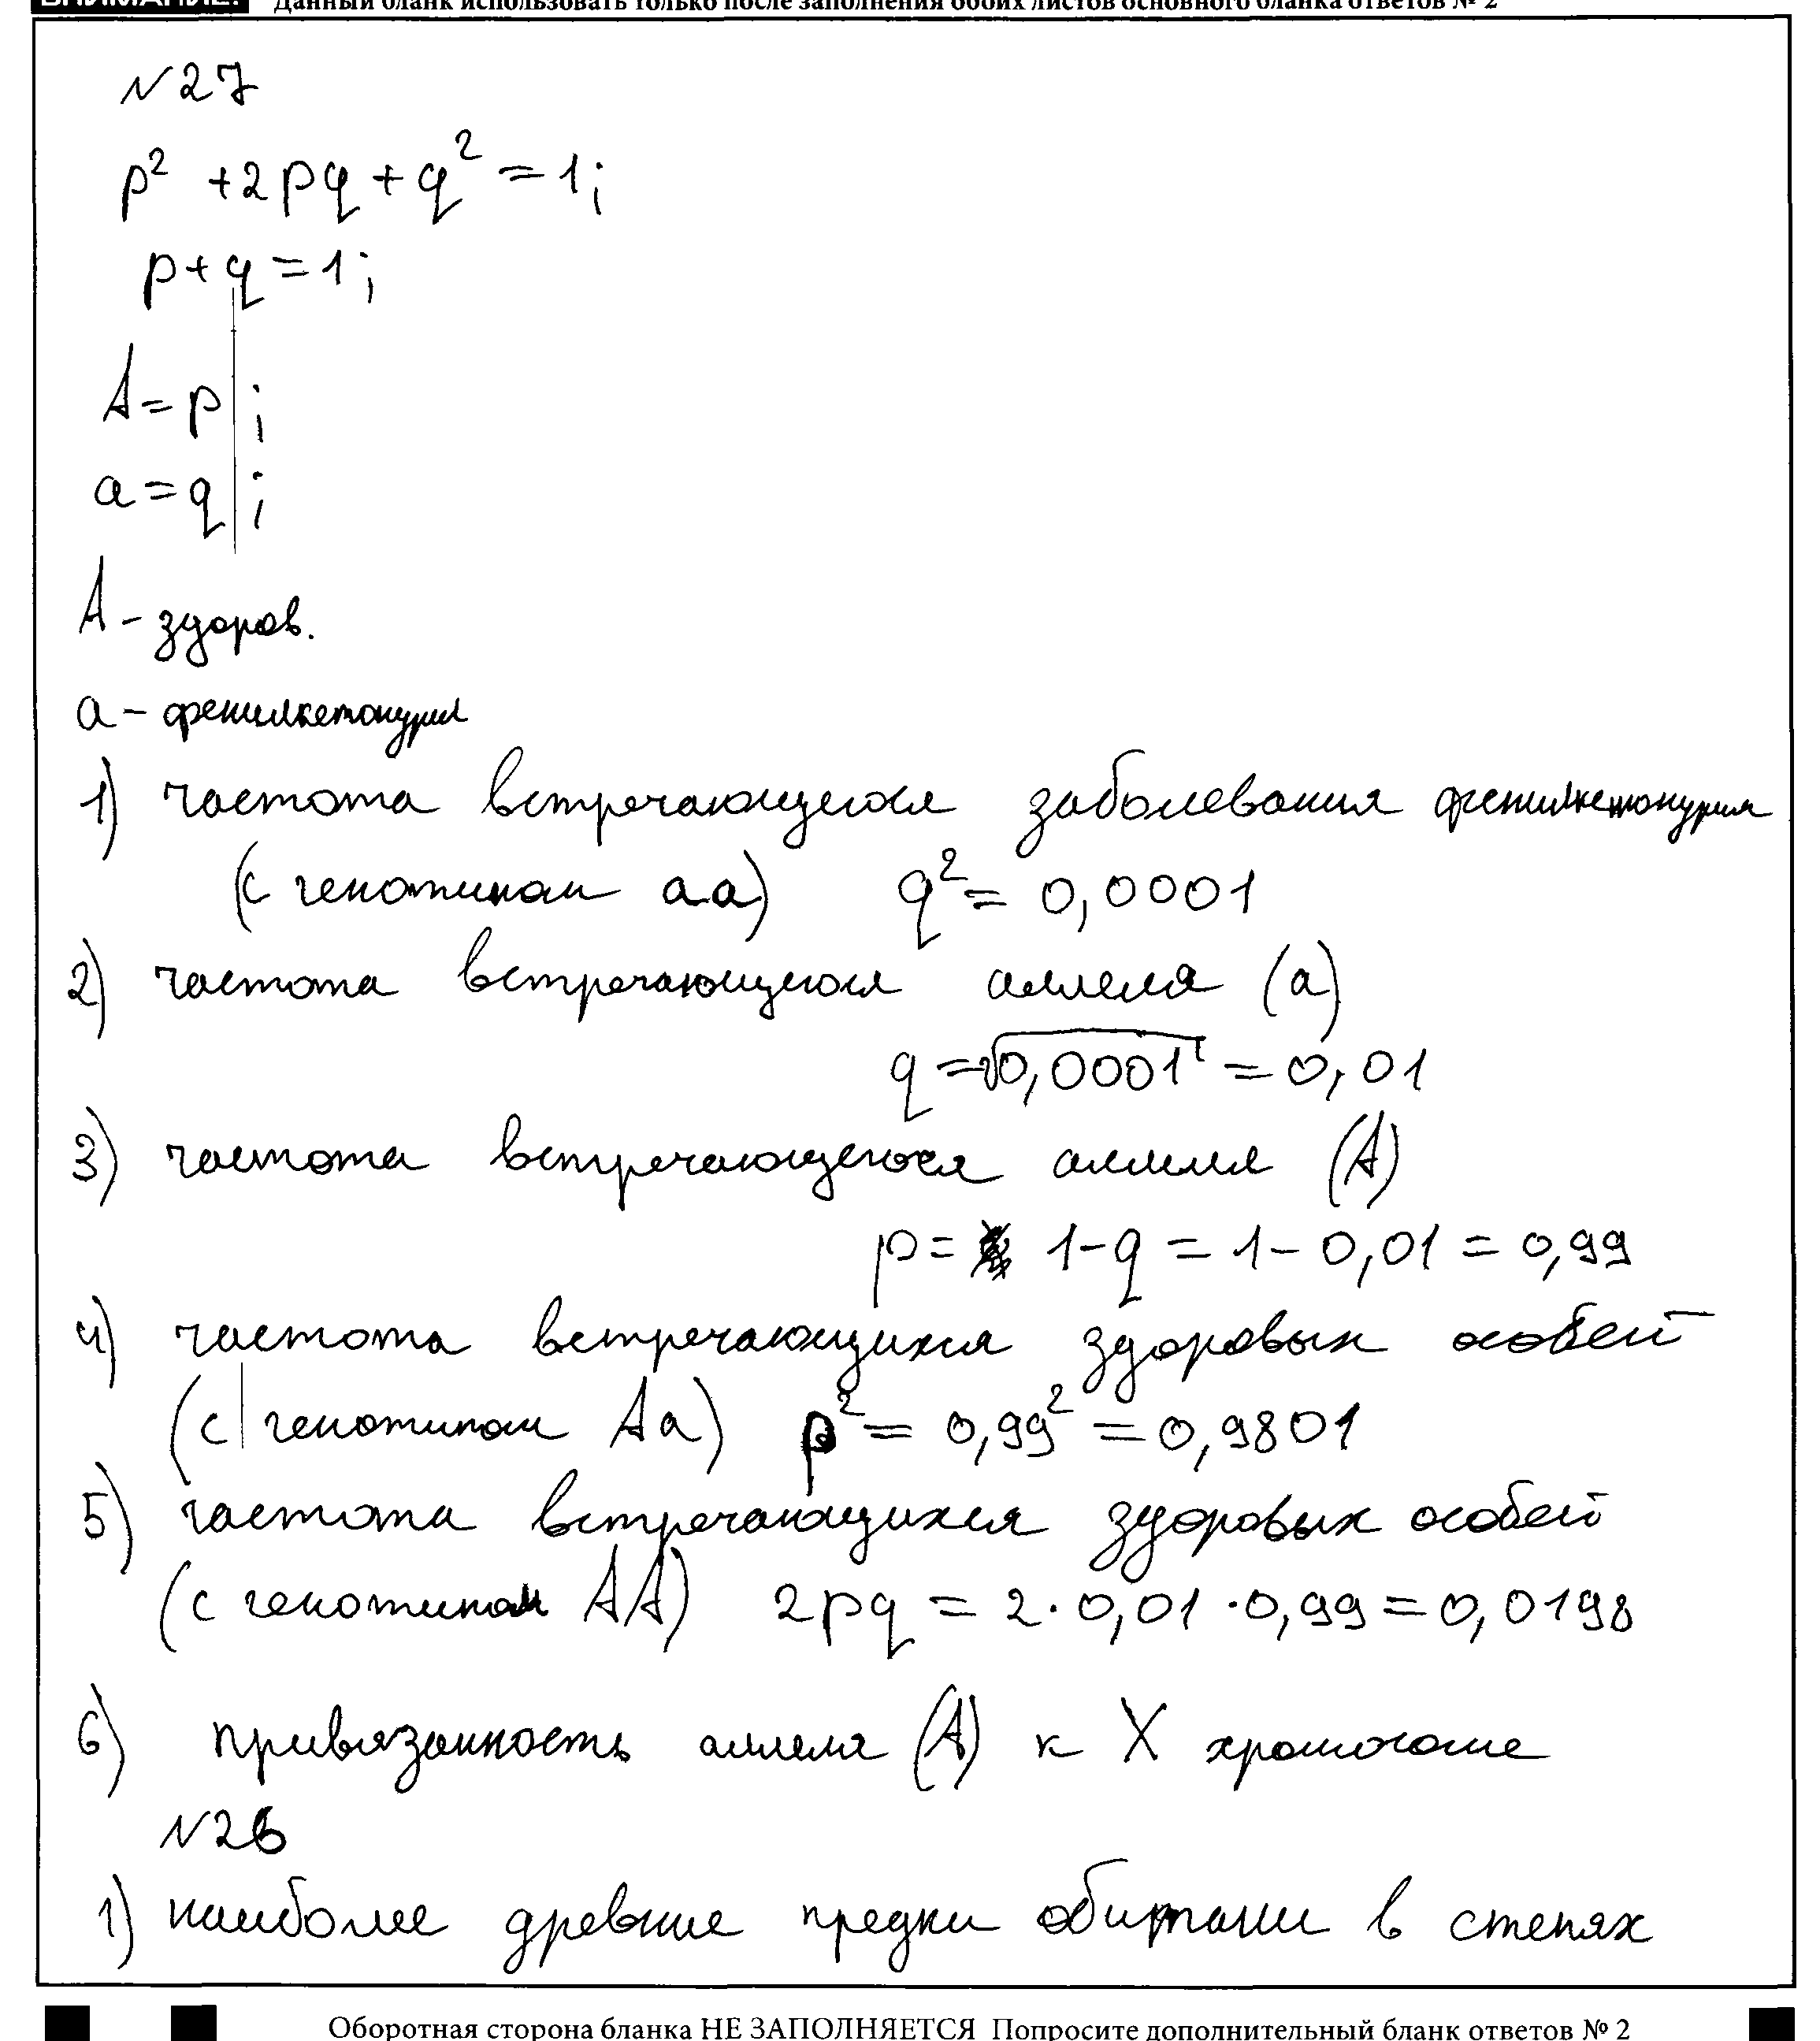 ВНИМАНИЕ! Данный бланк использовать только после заполнения обоих листов основного бланка ответов № 2
N27
p² + 2pq + q² = 1;
p + q = 1;
A = p ;
a = q ;
A - здоров.
a - фенилкетонурия
1) частота встречающегося заболевания фенилкетонурия
(с генотипом aa) q² = 0,0001
2) частота встречающегося аллеля (a)
q = √0,0001 = 0,01
3) частота встречающегося аллеля (A)
p = 1 - q = 1 - 0,01 = 0,99
4) частота встречающихся здоровых особей
(с генотипом Aa) p² = 0,99² = 0,9801
5) частота встречающихся здоровых особей
(с генотипом AA) 2pq = 2·0,01·0,99 = 0,0198
6) привязанность аллеля (A) к X хромосоме
N26
1) наиболее древние предки обитали в степях
Оборотная сторона бланка НЕ ЗАПОЛНЯЕТСЯ Попросите дополнительный бланк ответов № 2